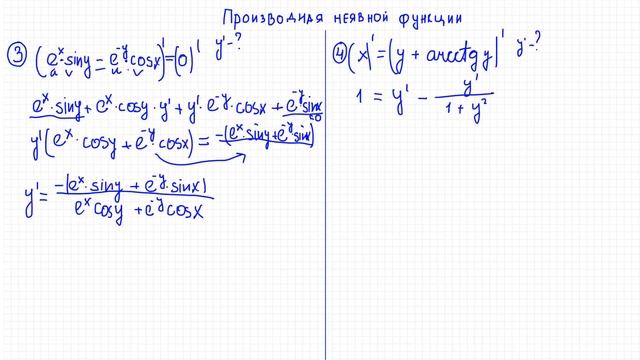 Производная неявной функции
③ (eˣ·siny = e⁻ʸ·cosx)' = (0)' y'-?
u v u v
eˣ·siny + eˣ·cosy·y' + y'·e⁻ʸ·cosx + e⁻ʸsinx = 0
y'(eˣ·cosy + e⁻ʸ·cosx) = -(eˣ·siny + e⁻ʸsinx)
y' = -(eˣ·siny + e⁻ʸ·sinx) / eˣcosy + e⁻ʸcosx
④ (x)' = (y + arcctg y)' y'-?
1 = y' - y' / 1 + y²